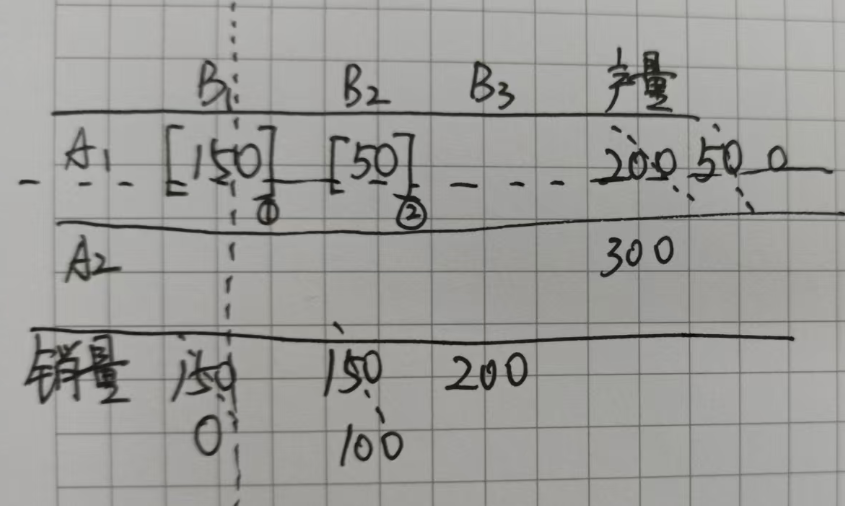 B1 B2 B3 产量
A1 [150] ① [50] ② 200 50 0
A2 300
销量 150 150 200
0 100